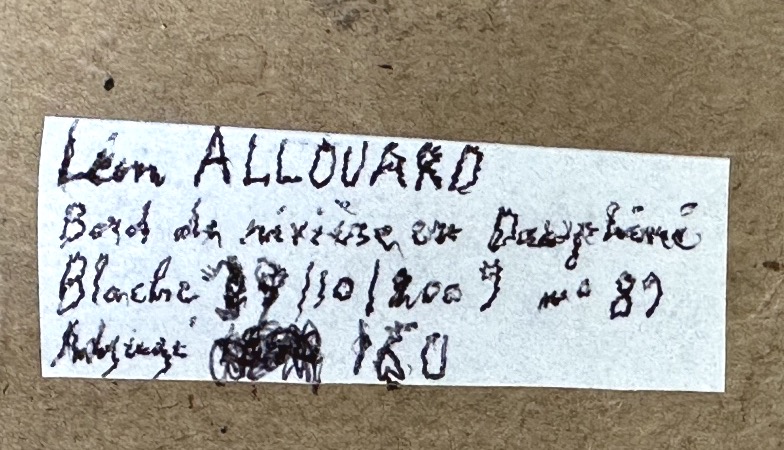 Léon ALLOUARD
Bord de rivière en Dauphiné
Blache 27/10/2007 n° 89
Adjugé 150